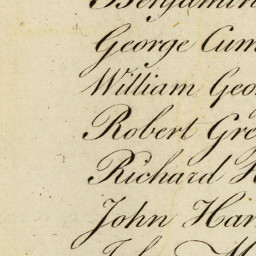 Benjamin
George Cum
William Geo
Robert Gre
Richard H
John Har
John M